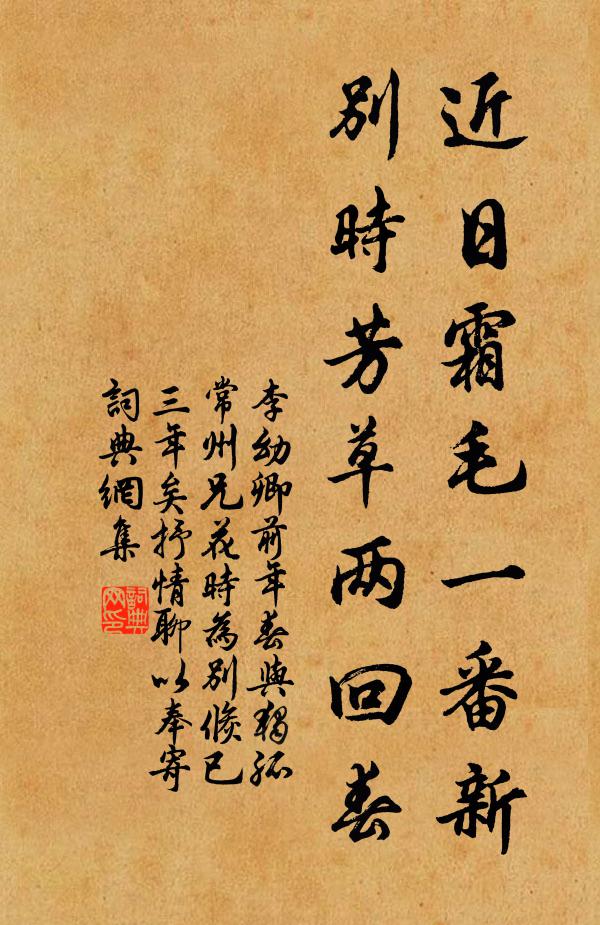 近日霜毛一番新
别時芳草两回春
李幼卿前年春與獨孤
常州兄花時為別倏已
三年矣抒情聊以奉寄
詞典網集
詞典网印